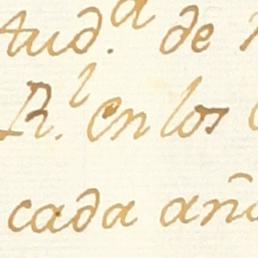 tud.ª de
R.l en los
cada año